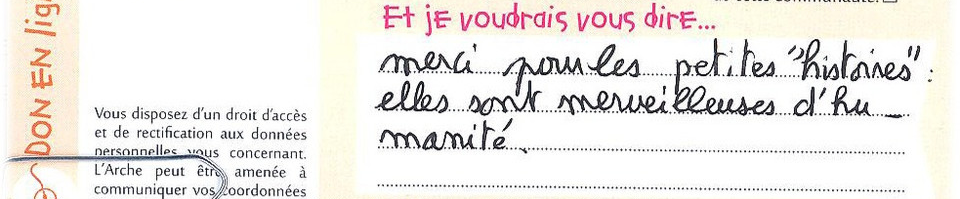 Et je voudrais vous dire...
merci pour les petites "histoires" :
elles sont merveilleuses d'hu_
manité.
DON EN lig
Vous disposez d'un droit d'accès
et de rectification aux données
personnelles vous concernant.
L'Arche peut être amenée à
communiquer vos coordonnées